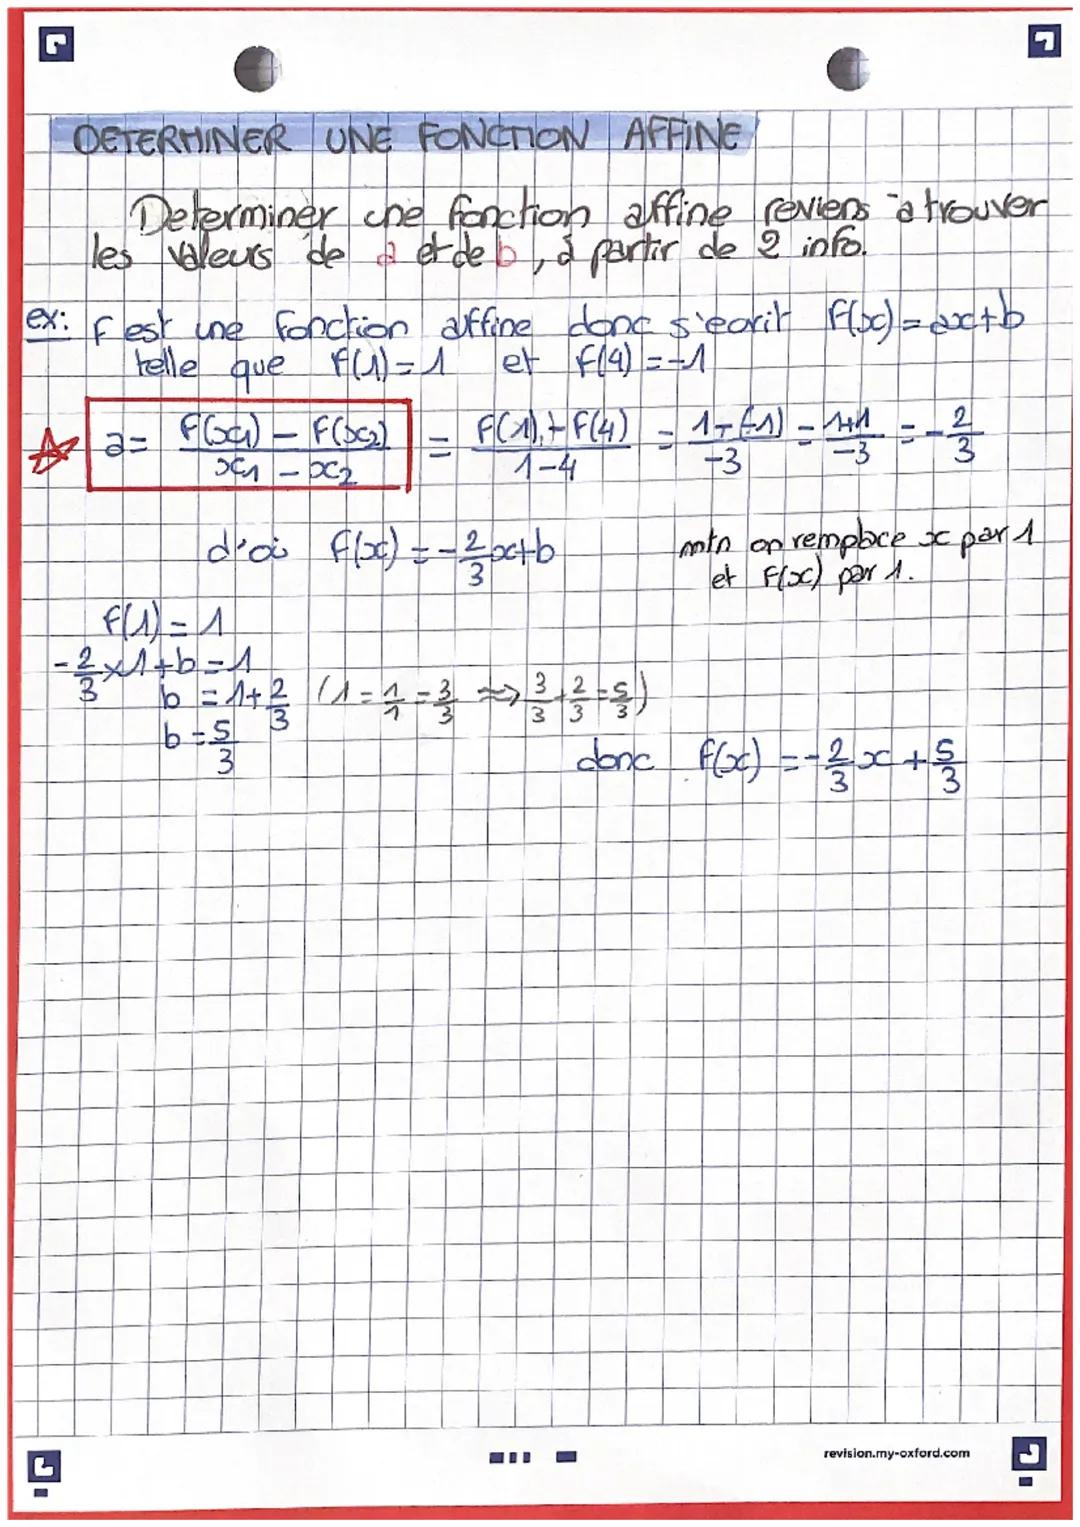 DETERMINER UNE FONCTION AFFINE
Determiner une fonction affine reviens à trouver
les valeurs de a et de b, à partir de 2 info.
ex: f est une fonction affine donc s'ecrit f(x) = ax+b
telle que f(1) = 1 et f(4) = -1
a = f(x1) - f(x2) / x1 - x2 = f(1) - f(4) / 1-4 = 1-(-1) / -3 = 1+1 / -3 = -2/3
d'où f(x) = -2/3 x+b
mtn on remplace x par 1
et f(x) par 1.
f(1) = 1
-2/3 x1+b = 1
b = 1+2/3 (1 = 1/1 = 3/3 ~> 3/3 + 2/3 = 5/3)
b = 5/3
donc f(x) = -2/3 x + 5/3
revision.my-oxford.com